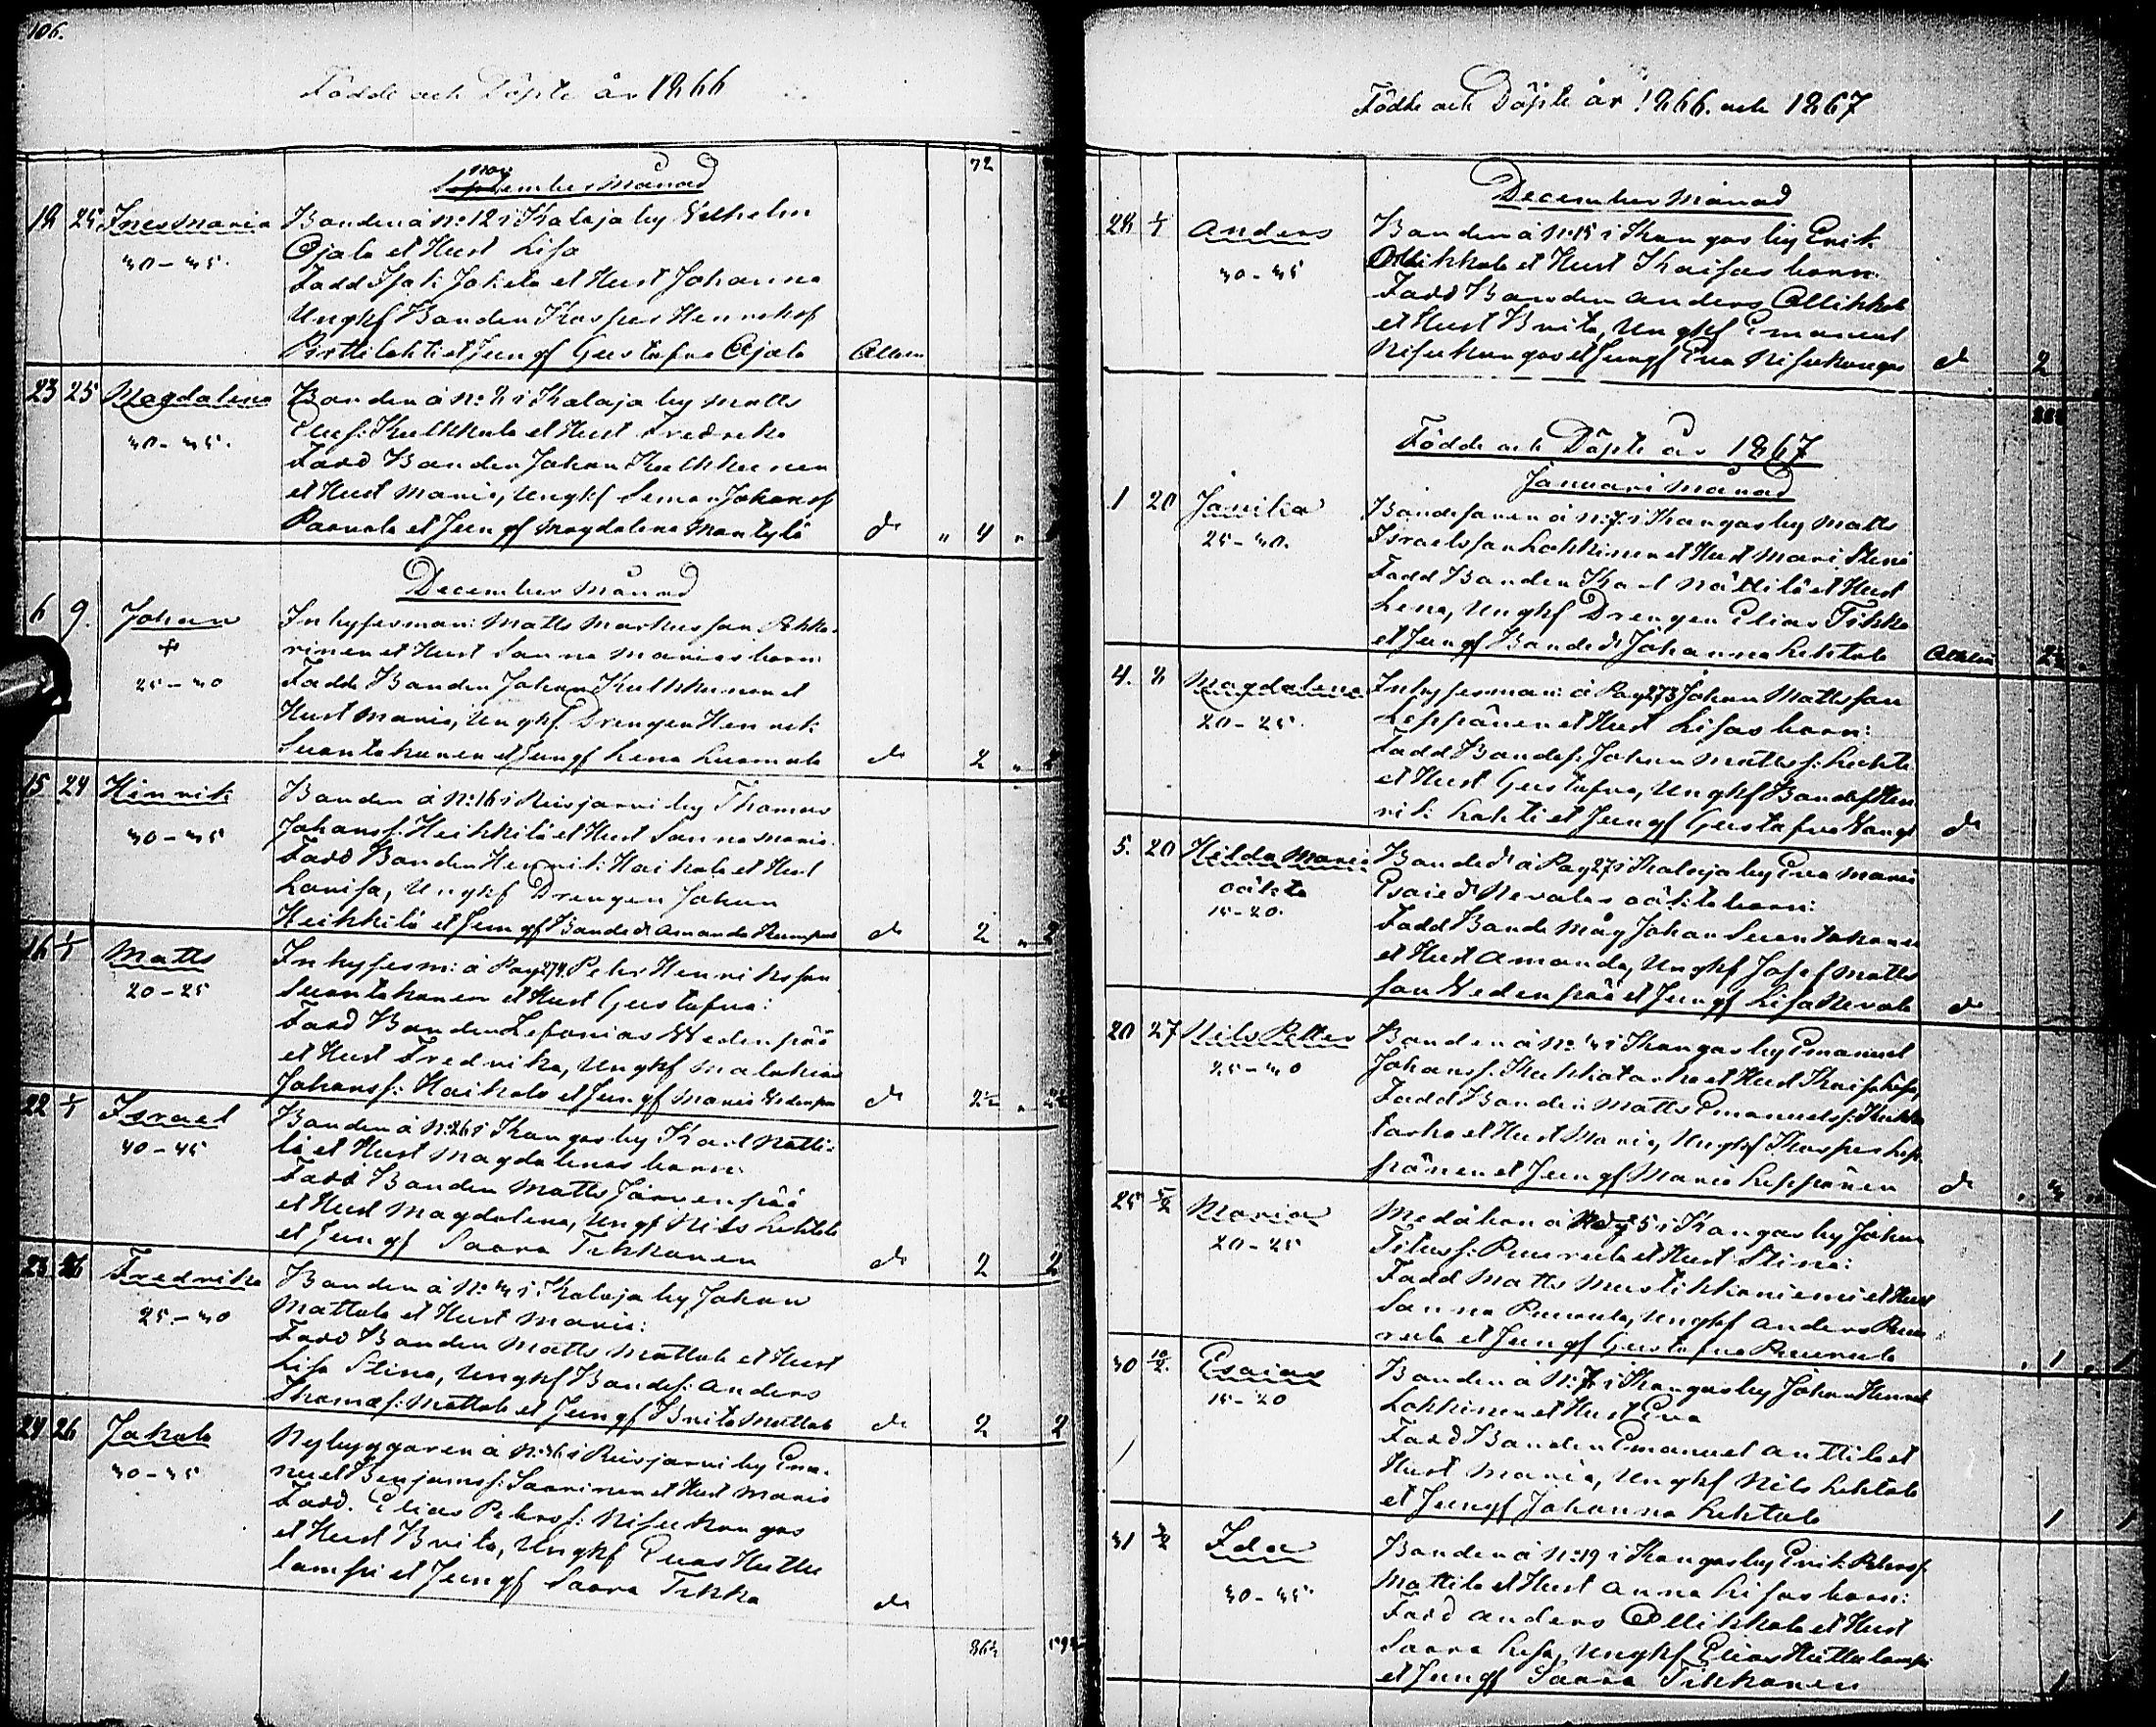 106.
Födde och Döpte år 1866
72
nov
Septembermånad
18 25 Ines Maria Bonden å No 12 i Kalaja by Vilhelm
30-35. Ojala et Hust Lisa
Fadd Isak Jokela et Hust Johanna
Unghf Bonden Kasper Henriksf
Pirttilahti et Jungf Gustafva Ojala Allen
23 25 Magdalena Bonden å No 2 i Kalaja by Matts
30-35. Eliesf: Kulkkula et Hust Fredrika
Fadd Bonden Johan Kulkkunen
et Hust Maria, Unghf Simon Johansf
Paavola et Jungf Magdalena Mantylä do " 4 "
December Månad
6 9. Johan Inhysesman: Matts Markusson Pekka-
+ rinen et Hust Sanna Marias barn:
25-30 Fadde Bonden Johan Kulkkunen et
Hust Maria, Unghf. Drengen Henrik
Suontakanen et Jungf Lena Luomala do 2 "
15 24 Hinrik Bonden å No 16 i Reisjärvi by Thomas
30-35 Johansf: Heikkilä et Hust Sanna Maria.
Fadd Bonden Henrik Haikola et Hust
Lovisa, Unghf Drengen Johan
Heikkilä et Jungf Bonded Amanda Kumpu do 2 " 2
16 1/1 Matts Inhysesm: å Pag 274. Peter Henriksson
20-25 Suontakanen et Hust Gustafva:
Fadd Bonden Zefanias Vedenpää
et Hust Fredrika, Unghf Malakias
Johansf: Haikola et Jungf Maria Vedenpää do 2½ "
22 1/1 Israel Bonden å No 26 i Kangas by Karl Nätti-
40-45 lä et Hust Magdalenas barn:
Fadd Bonden Matts Järvenpää
et Hust Magdalena, Ungf Nils Lehtola
et Jungf Saara Tikkanen do 2 2
23 26 Fredrika Bonden å No 3 i Kalaja by Johan
25-30 Mattola et Hust Maria:
Fadd Bonden Matts Mattola et Hust
Lisa Stina, Unghf Bondes: Anders
Thomasf: Mattola et Jungf Brita Mattola do 2 2
24 26 Jakob Nybyggaren å No 36 i Reisjärvi by Ema-
30-35 nuel Benjamsf: Saarinen et Hust Maria
Fadd. Elias Petersf: Nisukangas
et Hust Brita, Unghf Elias Huttu
lampi et Jungf Saara Tikka do
86½
Födde och Döpte år 1866. och 1867
December Månad
28 1/1 Anders Bonden å No 15 i Kangas by Erik
30-35 Ollikkala et Hust Kaisas barn:
Fadd Bonden Anders Ollikkala
et Hust Brita, Unghf Emanuel
Nisukangas et Jungf Eva Nisukangas do 2
Födde och Döpte år 1867
Januari Månad
1 20 Bondesonen å No 7. i Kangas by Matts
25-30. Israelsson Lokkinen et Hust Mari Stina
Fadd Bonden Karl Nättilä et Hust
Lena, Unghf Drengen Elias Tikka
et Jungf Bonded Johanna Lehtola Allen 2½
4. 8 Magdalena Inhysesman: å Pag 273 Johan Mattsson
20-25. Leppänen et Hust Lisas barn:
Fadd Bondes: Johan Mattsf: Lehto
et Hust Gustafva, Unghf Bondes Hen
rik Lahti et Jungf Gustafva do
5. 20 Hilda Maria Bonded å Pag 27 i Kalaja by Eva Maria
oäkta Esaied Nevalas oäkta barn:
15-20. Fadd Bonde Måg Johan Suontakanen
et Hust Amanda, Unghf Josef Matts
son Vedenpää et Jungf Lisa Nevala do
20 27 Nils Petter Bonden å No 3 i Kangas by Emanuel
25-30 Johansf: Kukkatasko et Hust Kaisa Lisa,
Fadd Bonden Matts Emanuelsf: Kukka
tasko et Hust Maria, Unghf Kasper Lep-
pänen et Jungf Maria Leppänen do
25 3/2 Maria Medåbon å No 5 i Kangas by Johan
20-25 Titusf: Puurula et Hust Stina:
Fadd Matts Mustikkaniemi et Hust
Sanna Puurula, Unghf Anders Puu
rula et Jungf Gustafva Puurula 1 1
30 10/2. Esaias Bonden å No 7 i Kangas by Johan Henrik
15-20 Lokkinen et Hust Eva
Fadd Bonden Emanuel Anttila et
Hust Maria, Unghf Nils Lehtola
et Jungf Johanna Lehtola 1 1
31 3/2 Ida Bonden å No 19 i Kangas by Erik Petersf
30-35 Mattila et Hust Anna Lisas barn:
Fadd Anders Ollikkala et Hust
Saara Lisa, Unghf Elias Huttulampi
et Jungf Saara Tikkanen 1